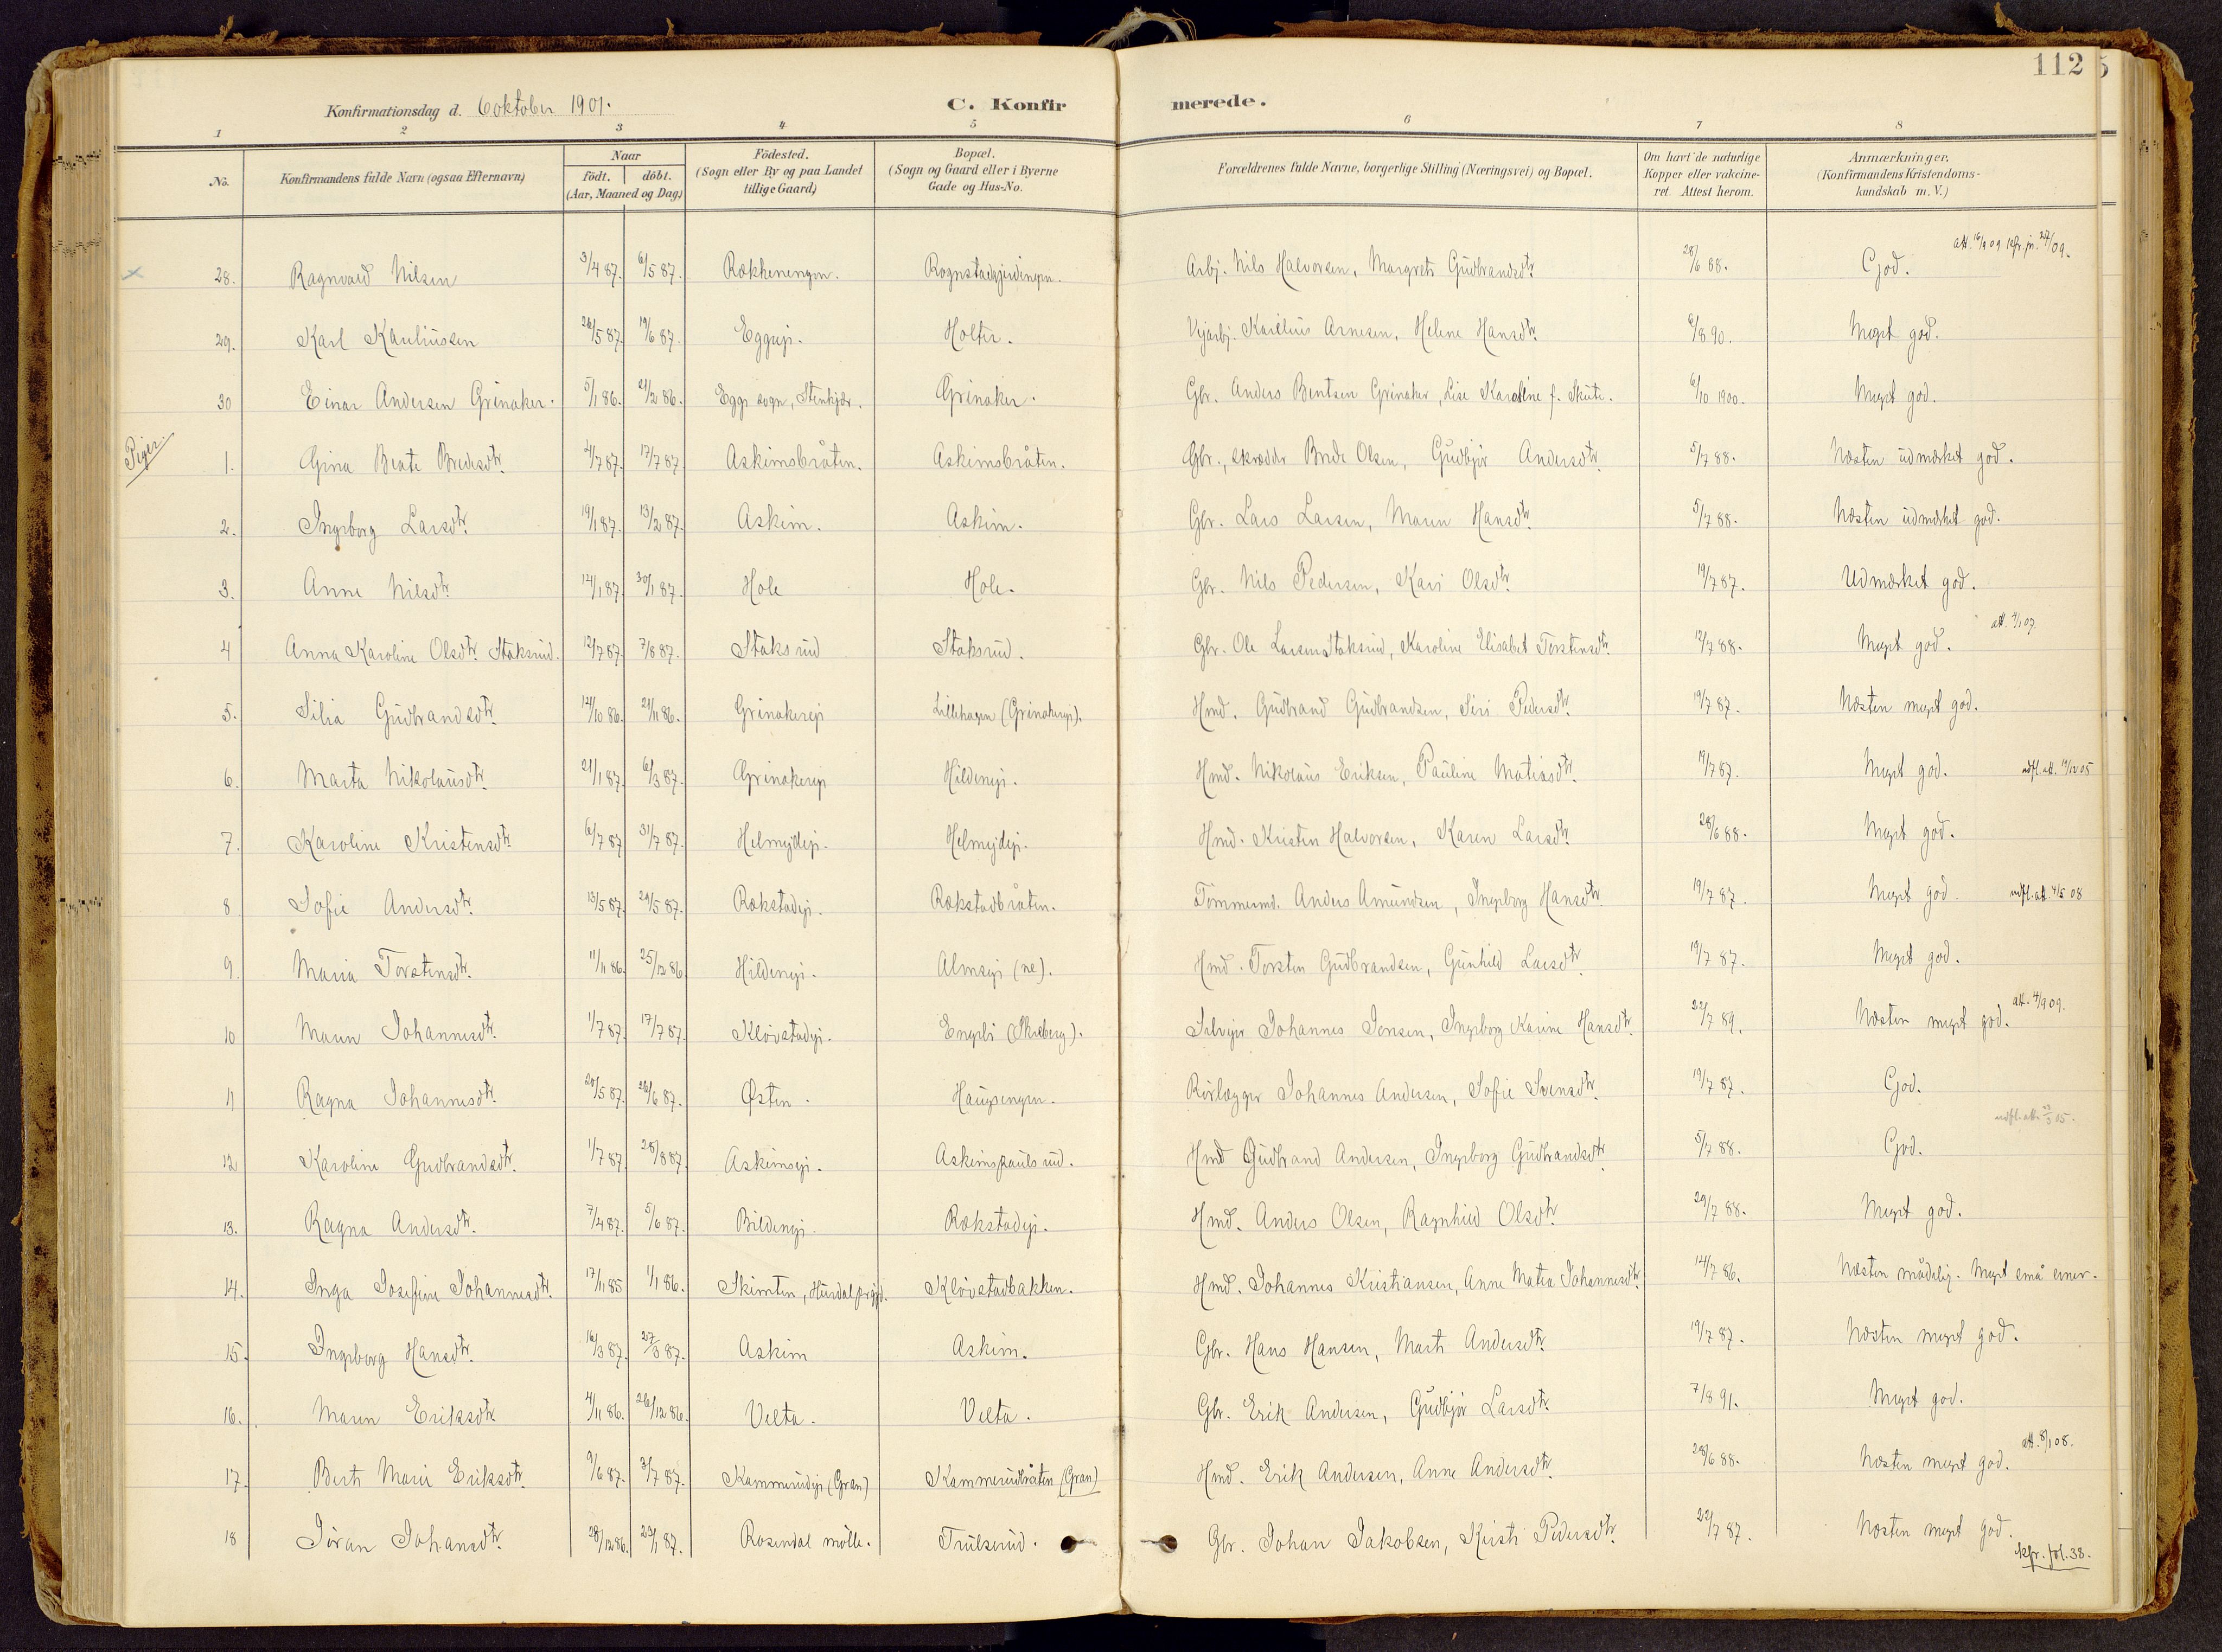 112
Konfirmationsdag d. 6 oktober 1901.
C. Konfirmerede.
1 2 3 4 5 6 7 8
No. | Konfirmandens fulde Navn (ogsaa Efternavn) | Naar födt. | döbt. (Aar, Maaned og Dag) | Födested. (Sogn eller By og paa Landet tillige Gaard) | Bopæl. (Sogn og Gaard eller i Byerne Gade og Hus-No. | Forældrenes fulde Navne, borgerlige Stilling (Næringsvei) og Bopæl. | Om havt de naturlige Kopper eller vakcineret. Attest herom. | Anmærkninger. (Konfirmandens Kristendomskundskab m. V.)
28. Ragnvald Nilsen 3/4 87. 6/5 87. Rækkenengen. Rognstadgjerdingen. Arbj. Nils Halvorsen, Margrete Gudbrandsdtr. 28/6 88. God. att. 16/9 09
29. Karl Kauliussen 26/5 87. 19/6 87. Eggeej. Holter. Vejarbj. Karelius Arnesen, Helene Hansdtr. 6/8 90. Meget god.
30 Einar Andersen Grinaker. 5/1 86. 21/2 86. Egge sogn, Stenkjær. Grinaker. Gbr. Anders Bentsen Grinaker, Lise Karoline f. Skute. 6/10 1900. Meget god.
Piger.
1. Gina Beate Bredesdtr. 2/7 87. 17/7 87 Askimsbråten. Askimsbråten. Gbr., skrædder Brede Olsen, Gudbjør Andersdtr. 5/7 88. Næsten udmærket god.
2. Ingeborg Larsdtr. 19/1 87. 13/2 87. Askim. Askim. Gbr. Lars Larsen, Maren Hansdtr. 5/7 88. Næsten udmærket god.
3. Anne Nilsdtr. 14/1 87. 30/1 87. Hole Hole. Gbr. Nils Pedersen, Kari Olsdtr. 19/7 87. Udmærket god.
4 Anna Karoline Olsdtr. Staksrud. 12/7 87. 7/8 87. Staksrud Staksrud. Gbr. Ole Larsen Staksrud, Karoline Elisabet Torstensdtr. 12/7 88. Meget god. att. 4/1 07.
5. Silia Gudbrandsdtr. 12/10 86. 21/11 86. Grinakereje Lillehagen (Grinakerej). Hmd. Gudbrand Gudbrandsen, Siri Pedersdtr. 19/7 87. Næsten meget god.
6. Marta Nikolausdtr. 21/1 87. 6/3 87. Grinakereje Hildenej. Hmd. Nikolaus Eriksen, Pauline Matiasdtr. 19/7 87. Meget god. udfl. att. 14/12 05
7. Karoline Kristensdtr. 6/7 87 31/7 87. Helmejdej. Helmejdej. Hmd. Kristen Halvorsen, Karen Larsdtr. 28/6 88. Meget god.
8 Sofie Andersdtr. 13/5 87. 29/5 87. Rækstadej. Rækstadbråten. Tömmermd. Anders Amundsen, Ingeborg Hansdtr. 19/7 87. Meget god. udfl. att. 4/5 08
9. Maria Torstensdtr. 11/11 86. 25/12 86. Hildenej. Almsej (ne). Hmd. Torsten Gudbrandsen, Gunhild Larsdtr. 19/7 87. Meget god.
10 Maren Johannesdtr. 1/7 87. 17/7 87. Kløvstadej. Engeli (Skiaberg). Selvejer Johannes Jensen, Ingeborg Karine Hansdtr. 22/7 89. Næsten meget god. att. 4/9 09.
11 Ragna Johannesdtr. 20/5 87. 26/6 87. Østen. Haugsengen. Rörlægger Johannes Andersen, Sofie Svensdtr. 19/7 87. God.
12 Karoline Gudbrandsdtr. 1/7 87. 28/8 87. Askimsej. Askimspaulsrud. Hmd Gudbrand Andersen, Ingeborg Gudbrandsdtr. 5/7 88. God. udfl. att.
13. Ragna Andersdtr. 7/4 87. 5/6 87. Bildenej. Rækstadej. Hmd. Anders Olsen, Ragnhild Olsdtr. 29/7 88. Meget god.
14. Inga Josefine Johannesdtr. 17/11 85 1/1 86. Skimten, Hurdal prgjd. Kløvstadbakken. Hmd. Johannes Kristiansen, Anne Matea Johannesdtr. 14/7 86. Næsten mådelig. Meget små evner.
15. Ingeborg Hansdtr. 16/3 87. 27/3 87. Askim Askim. Gbr. Hans Hansen, Marte Andersdtr. 19/7 87. Næsten meget god.
16. Maren Eriksdtr. 4/11 86. 26/12 86. Velta. Velta. Gbr. Erik Andersen, Gudbjør Larsdtr. 7/8 91. Meget god.
17. Berte Marie Eriksdtr. 9/6 87. 3/7 87. Kammerudej (Gran) Kammerudbråten (Gran) Hmd. Erik Andersen, Anne Andersdtr. 28/6 88. Næsten meget god. att. 8/1 08.
18 Jøran Johansdtr. 28/12 86. 23/1 87. Rosendal mølle. Trulserud. Gbr. Johan Jakobsen, Kirsti Pedersdtr. 22/7 87. Næsten meget god. kfr. fol. 38.